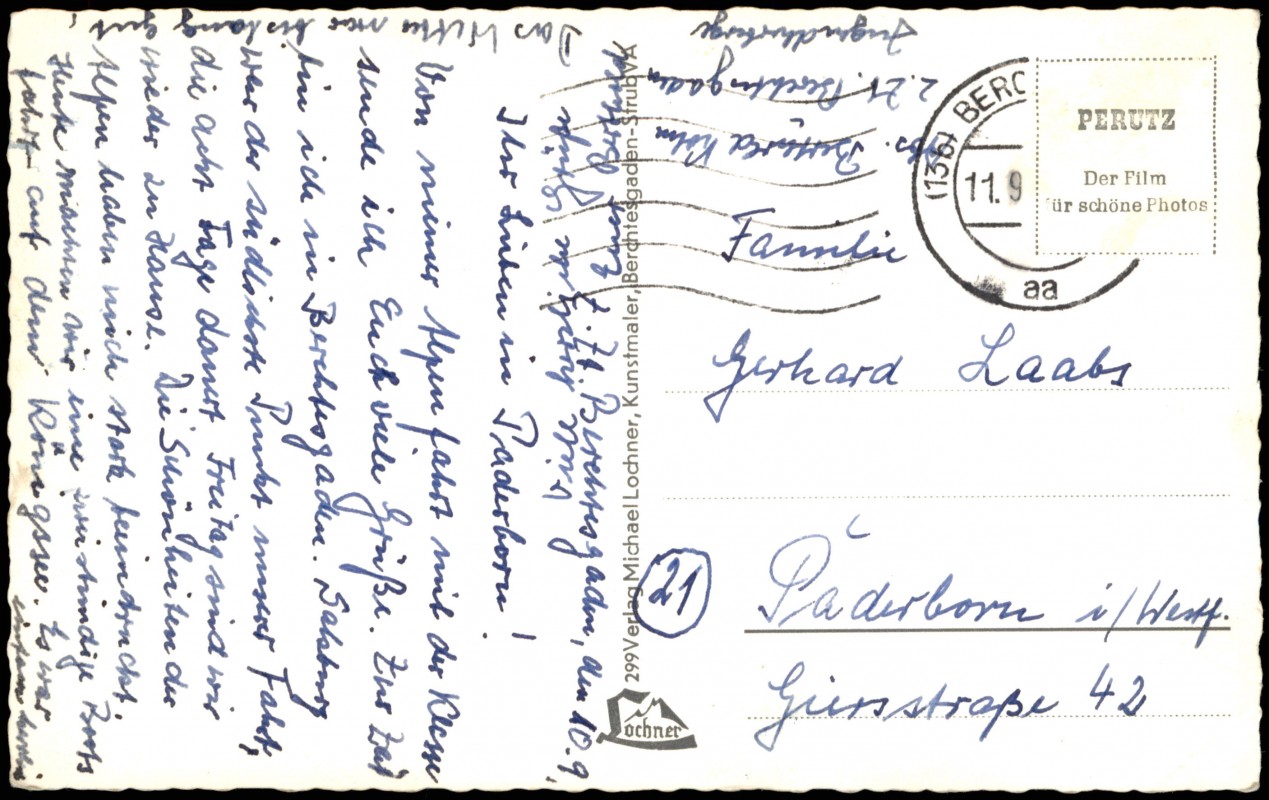 z. Zt. Berchtesgaden, den 10.9.
Ihr Lieben in Paderborn!
Von meiner Alpenfahrt mit der Klasse
sende ich Euch viele Grüße. Zur Zeit
bin ich in Berchtesgaden. Salzburg
war der südlichste Punkt unserer Fahrt,
die acht Tage dauert. Freitag sind wir
wieder zu Hause. Die Schönheiten der
Alpen haben mich stark beeindruckt.
Heute machten wir eine zweistündige Boots
fahrt auf dem Königssee. Es war
Das Wetter war bislang gut,
299 Verlag Michael Lochner, Kunstmaler, Berchtesgaden-Strub VA
Lochner
Köln
z. Zt. Berchtesgaden
Jugendherberge
(13b) BERC
11.9
aa
PERUTZ
Der Film
für schöne Photos
Familie
Gerhard Laabs
21
Paderborn i/Westf.
Giersstraße 42